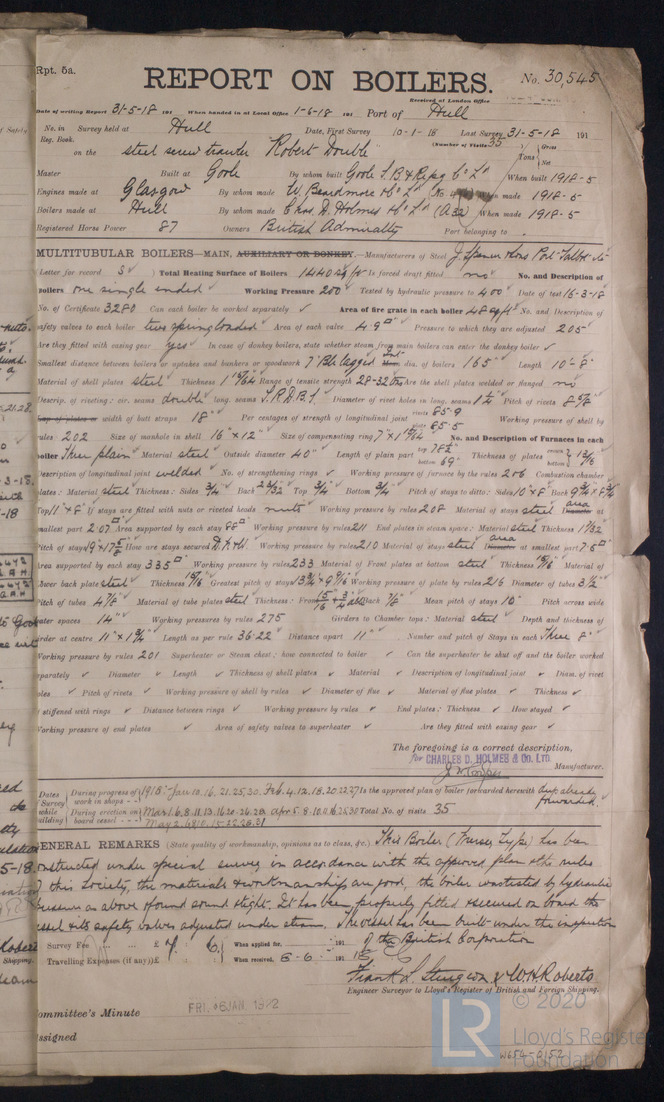 Rpt. 5a.
REPORT ON BOILERS.
No. 30,545
Received at London Office
Date of writing Report 31-5-18 191 When handed in at Local Office 1-6-18 191 Port of Hull
No. in Survey held at Hull Date, First Survey 10-1-18 Last Survey 31-5-18 191
Reg. Book. (Number of Visits 35)
on the steel screw trawler Robert Double Tons Gross Net
Master Built at Goole By whom built Goole S.B & Repg Co Ld When built 1918-5
Engines made at Glasgow By whom made W. Beardmore & Co Ld (No. When made 1918-5
Boilers made at Hull By whom made Chas D. Holmes & Co Ld (A32) When made 1918-5
Registered Horse Power 87 Owners British Admiralty Port belonging to
MULTITUBULAR BOILERS—MAIN, AUXILIARY OR DONKEY.—Manufacturers of Steel J. Spencer & Sons Port Talbot
Letter for record S Total Heating Surface of Boilers 1440 sq ft Is forced draft fitted no No. and Description of
Boilers one single ended Working Pressure 200 Tested by hydraulic pressure to 400 Date of test 16-3-18
No. of Certificate 3280 Can each boiler be worked separately ✓ Area of fire grate in each boiler 48 sq ft No. and Description of
safety valves to each boiler two spring loaded Area of each valve 4.9□" Pressure to which they are adjusted 205
Are they fitted with easing gear yes In case of donkey boilers, state whether steam from main boilers can enter the donkey boiler ✓
Smallest distance between boilers or uptakes and bunkers or woodwork 7" Blr lagged Int dia. of boilers 165" Length 10'-8"
Material of shell plates steel Thickness 1 15/64 Range of tensile strength 28-32 tons Are the shell plates welded or flanged no
Descrip. of riveting: cir. seams double long. seams T.R.D.B.S. Diameter of rivet holes in long. seams 1 1/4" Pitch of rivets 8 5/8"
Lap of plates or width of butt straps 18" Per centages of strength of longitudinal joint rivets 85.9 plate 85.5 Working pressure of shell by
rules 202 Size of manhole in shell 16" × 12" Size of compensating ring 7" × 1 15/64 No. and Description of Furnaces in each
boiler Three plain Material steel Outside diameter 40" Length of plain part top 78 1/2" bottom 69" Thickness of plates crown bottom 13/16
Description of longitudinal joint welded No. of strengthening rings ✓ Working pressure of furnace by the rules 206 Combustion chamber
plates: Material steel Thickness: Sides 3/4" Back 23/32 Top 3/4 Bottom 3/4 Pitch of stays to ditto: Sides 10" × 8 Back 9 3/4 × 8 3/4
Top 11" × 8" If stays are fitted with nuts or riveted heads nuts Working pressure by rules 208 Material of stays steel area at
smallest part 2.07□" Area supported by each stay 88□" Working pressure by rules 211 End plates in steam space: Material steel Thickness 1 7/32
Pitch of stays 19" × 17 5/8 How are stays secured D.N.&W. Working pressure by rules 210 Material of stays steel area at smallest part 7.6□"
Area supported by each stay 335□" Working pressure by rules 233 Material of Front plates at bottom steel Thickness 15/16 Material of
Lower back plate steel Thickness 15/16 Greatest pitch of stays 13 3/4 × 9 7/16 Working pressure of plate by rules 216 Diameter of tubes 3 1/2"
Pitch of tubes 4 7/8 Material of tube plates steel Thickness: Front 15/16 + 3/4 Back 7/8" Mean pitch of stays 10" Pitch across wide
water spaces 14" Working pressures by rules 275 Girders to Chamber tops: Material steel Depth and thickness of
girder at centre 11" × 1 3/4 Length as per rule 36.22 Distance apart 11" Number and pitch of Stays in each Three 8"
Working pressure by rules 201 Superheater or Steam chest: how connected to boiler ✓ Can the superheater be shut off and the boiler worked
separately ✓ Diameter ✓ Length ✓ Thickness of shell plates ✓ Material ✓ Description of longitudinal joint ✓ Diam. of rivet
holes ✓ Pitch of rivets ✓ Working pressure of shell by rules ✓ Diameter of flue ✓ Material of flue plates ✓ Thickness ✓
If stiffened with rings ✓ Distance between rings ✓ Working pressure by rules ✓ End plates: Thickness ✓ How stayed ✓
Working pressure of end plates ✓ Area of safety valves to superheater ✓ Are they fitted with easing gear ✓
The foregoing is a correct description,
for CHARLES D. HOLMES & CO. LTD.
Manufacturer.
Dates of Survey while building During progress of work in shops - - 1918: Jan 10. 16. 21. 25. 30. Feb. 4. 12. 18. 20. 22. 27 Is the approved plan of boiler forwarded herewith dup already forwarded.
During erection on board vessel - - - Mar 1. 6. 8. 11. 13. 16. 20. 26. 28 Apr 5. 8. 10. 11. 16. 25. 30 Total No. of visits 35
GENERAL REMARKS (State quality of workmanship, opinions as to class, &c.) This Boiler ( Type) has been
constructed under special survey in accordance with the approved plan & the rules
of this Society, the materials & workmanship are good, the boiler was tested by hydraulic
pressure as above & found sound & tight. It has been properly fitted & secured on board the
vessel & its safety valves adjusted under steam. The vessel has been built under the inspection
of the British Corporation
Survey Fee ... ... £ When applied for, 191
Travelling Expenses (if any) £ When received, 6-6- 1918
Frank L. Sturgeon & W.H. Roberts
Engineer Surveyor to Lloyd's Register of British and Foreign Shipping.
Committee's Minute FRI. 6 JAN. 1922
Assigned
LR
© 2020
Lloyd's Register
Foundation
W654-0152